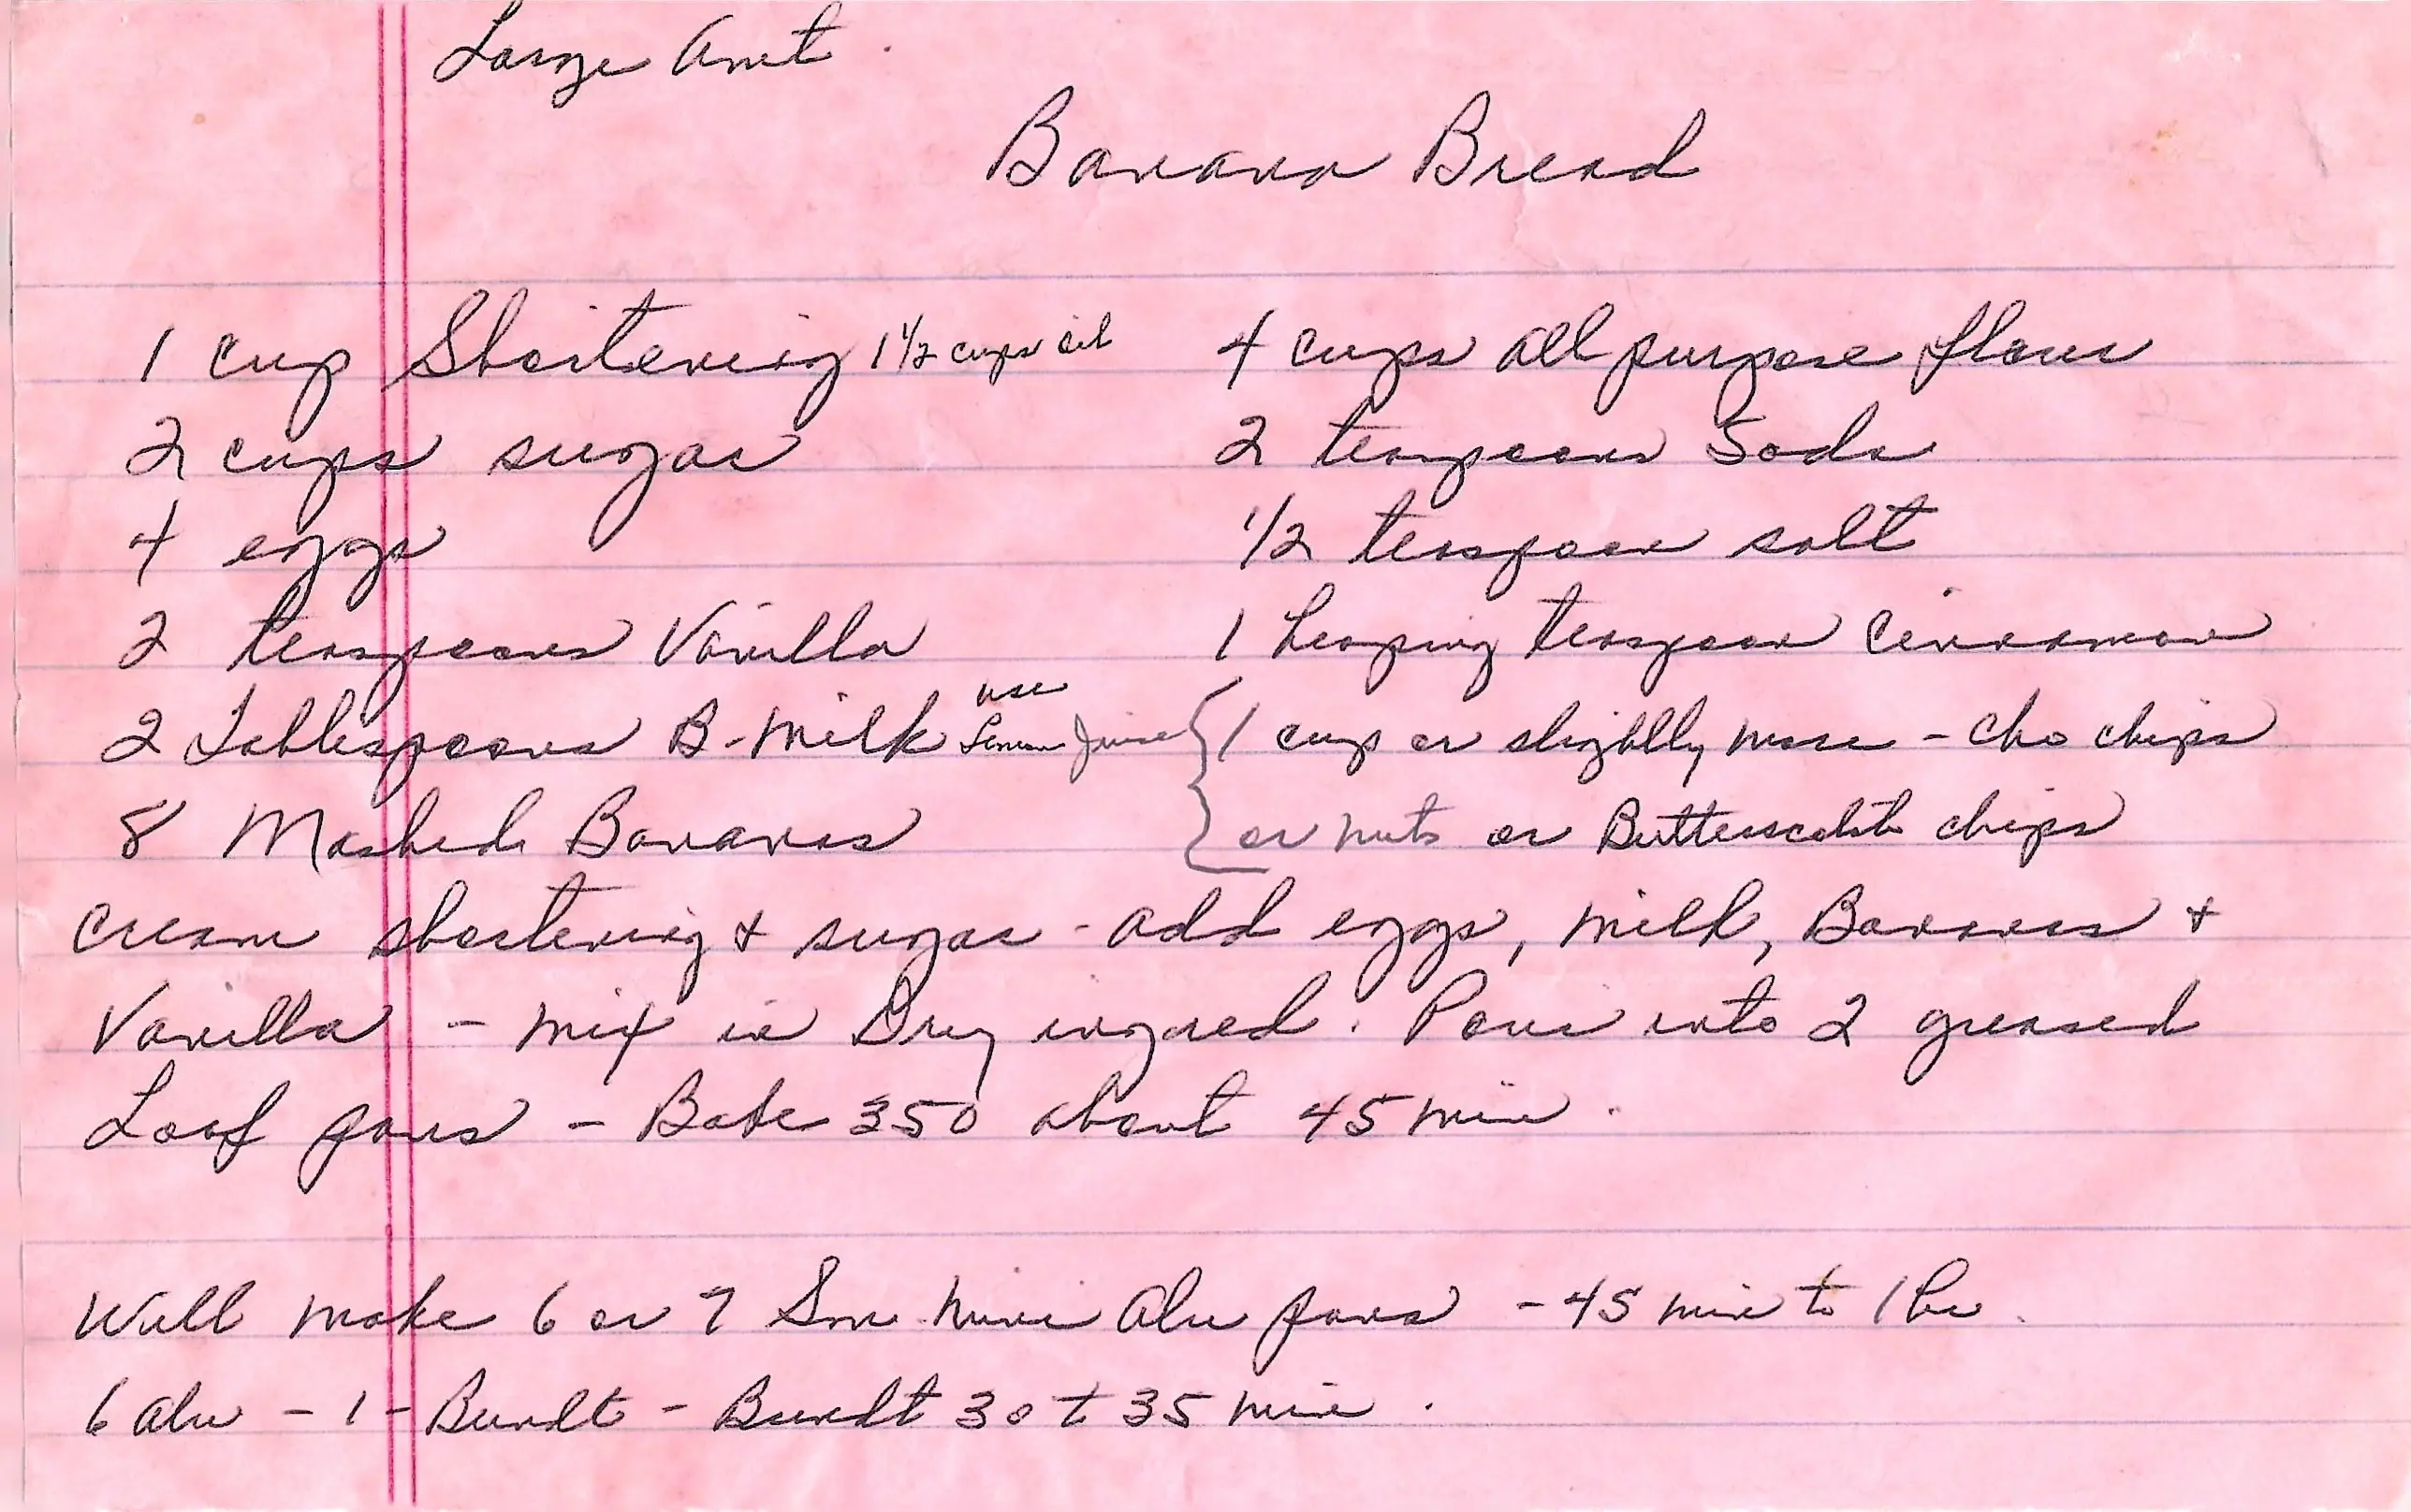 Large Amt
Banana Bread
1 cup Shortening 1 1/2 cups oil
2 cups sugar
4 eggs
2 teaspoons Vanilla
2 Tablespoons B-Milk use Lemon Juice
8 Mashed Bananas
4 cups all purpose flour
2 teaspoons Soda
1/2 teaspoon salt
1 heaping teaspoon Cinnamon
1 cup or slightly more - Cho chips
or nuts or Butterscotch chips
Cream shortening & sugar - add eggs, milk, Bananas &
Vanilla - mix in Dry ingred. Pour into 2 greased
Loaf pans - Bake 350 about 45 min.
Will make 6 or 7 Sm mini Alu pans - 45 min to 1 hr.
6 alu - 1 - Bundt - Bundt 30 t 35 min.